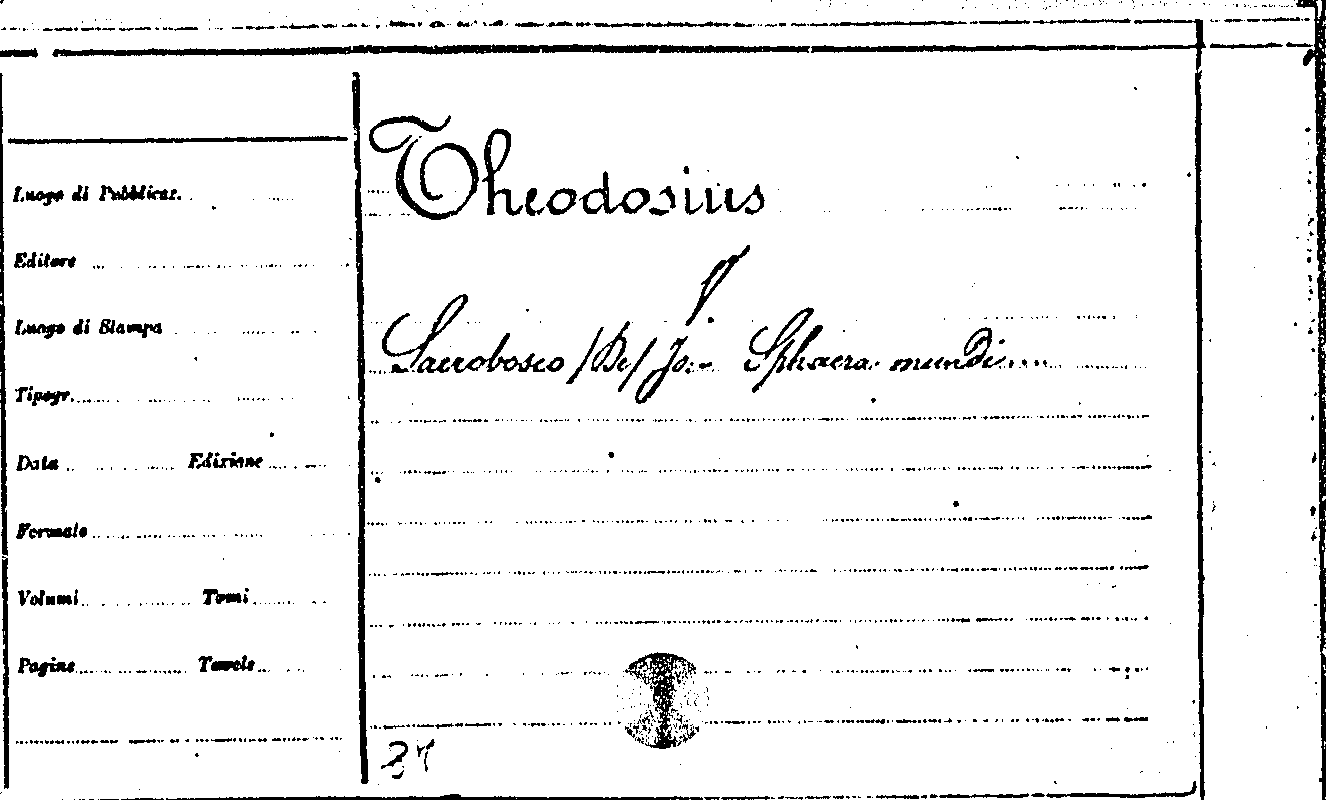 Theodosius
V.
Sacrobosco /De/ Jo:- Sphaera mundi....
Luogo di Pubblicaz.
Editore
Luogo di Stampa
Tipogr.
Data Edizione
Formato
Volumi Tomi
Pagine Tavole
37